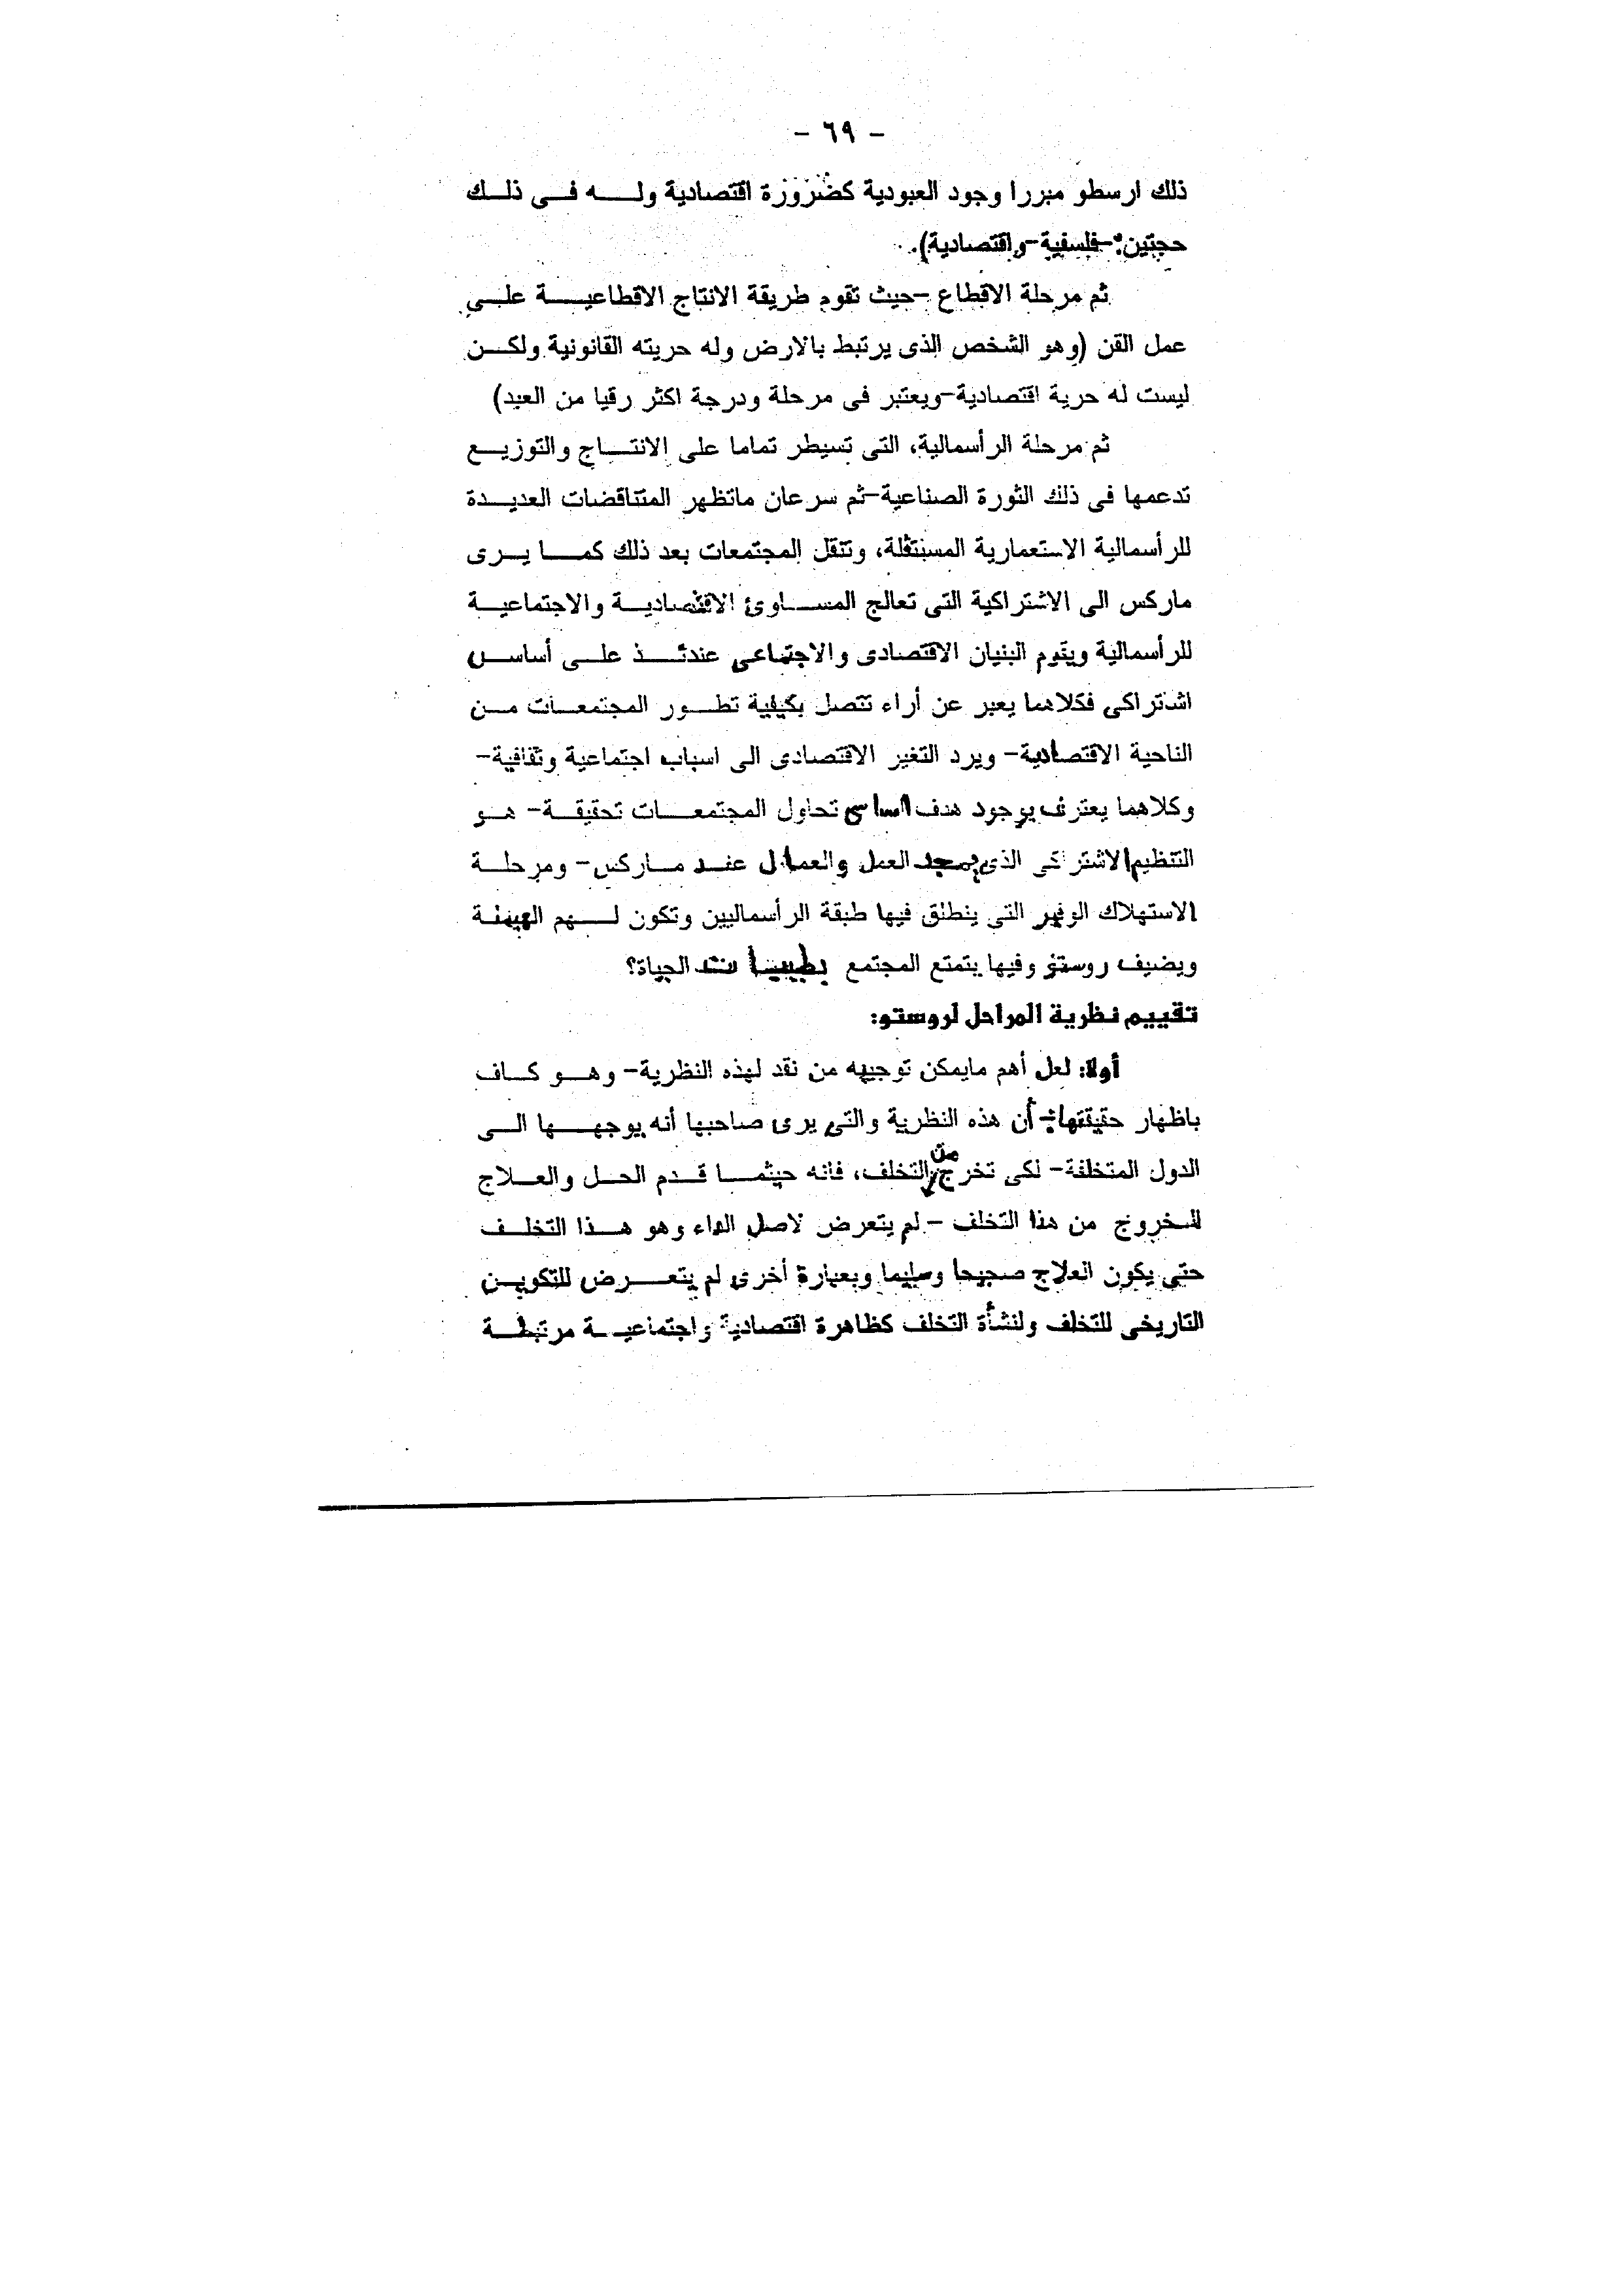 - ٦٩ -
ذلك ارسطو مبررا وجود العبودية كضرورة اقتصادية ولـــه فــى ذلــك
حجتين:-فلسفية-واقتصادية).
ثم مرحلة الاقطاع -حيث تقوم طريقة الانتاج الاقطاعيـــة علــى
عمل القن (وهو الشخص الذى يرتبط بالارض وله حريته القانونية ولكــن
ليست له حرية اقتصادية-ويعتبر فى مرحلة ودرجة اكثر رقيا من العبد)
ثم مرحلة الرأسمالية، التى تسيطر تماما على الانتــاج والتوزيــع
تدعمها فى ذلك الثورة الصناعية-ثم سرعان ماتظهر المتناقضات العديــدة
للرأسمالية الاستعمارية المستغلة، وتنقل المجتمعات بعد ذلك كمــا يــرى
ماركس الى الاشتراكية التى تعالج المســاوئ الاقتصاديــة والاجتماعيــة
للرأسمالية ويقوم البنيان الاقتصادى والاجتماعى عندئــذ علــى أساس
اشتراكى فكلاهما يعبر عن أراء تتصل بكيفية تطــور المجتمعــات مــن
الناحية الاقتصادية- ويرد التغير الاقتصادى الى اسباب اجتماعية وثقافية-
وكلاهما يعترف بوجود هدف اساسى تحاول المجتمعــات تحقيقــة- هــو
التنظيم الاشتراكى الذى يمجد العمل والعمال عنــد مــاركس- ومرحلــة
الاستهلاك الوفير التى ينطلق فيها طبقة الرأسماليين وتكون لــهم الهيمنة
ويضيف روستو وفيها يتمتع المجتمع بطيبات الحياة؟
تقييم نظرية المراحل لروستو:
أولا: لعل أهم مايمكن توجيهه من نقد لهذه النظرية- وهــو كــاف
باظهار حقيقتها:- أن هذه النظرية والتى يرى صاحبها أنه يوجهــها الــى
الدول المتخلفة- لكى تخرج من التخلف، فانه حيثمــا قــدم الحــل والعــلاج
للخروج من هذا التخلف -لم يتعرض لاصل الداء وهو هــذا التخلــف
حتى يكون العلاج صحيحا وسليما وبعبارة أخرى لم يتعــرض للتكويــن
التاريخى للتخلف ولنشأة التخلف كظاهرة اقتصادية واجتماعيــة مرتبطــة